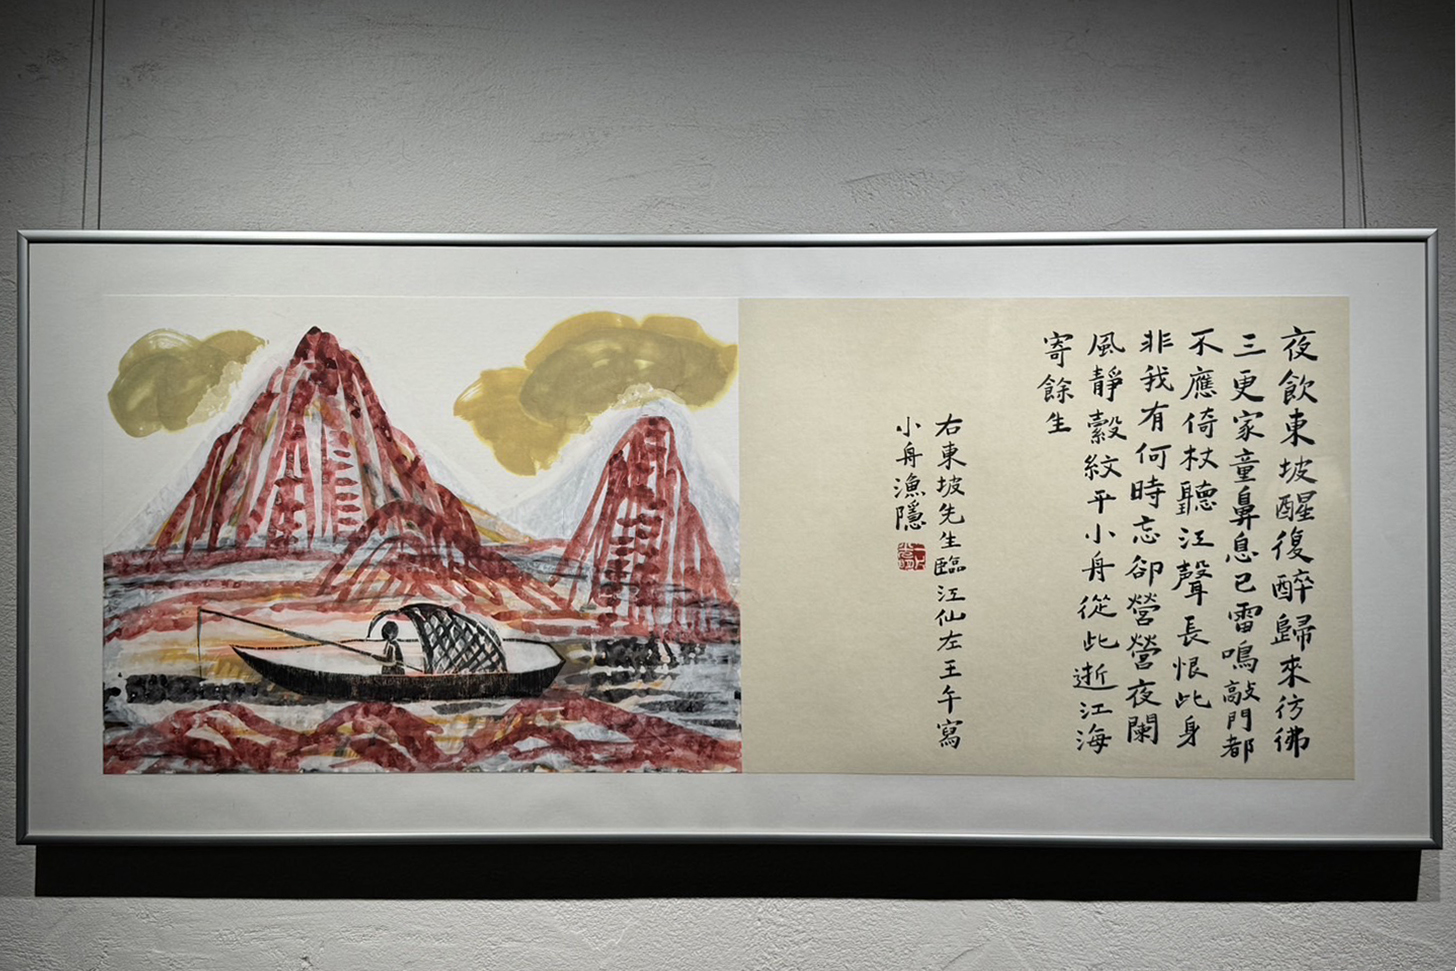 夜飲東坡醒復醉歸來彷彿
三更家童鼻息已雷鳴敲門都
不應倚杖聽江聲長恨此身
非我有何時忘卻營營夜闌
風靜縠紋平小舟從此逝江海
寄餘生
右東坡先生臨江仙左王午寫
小舟漁隱